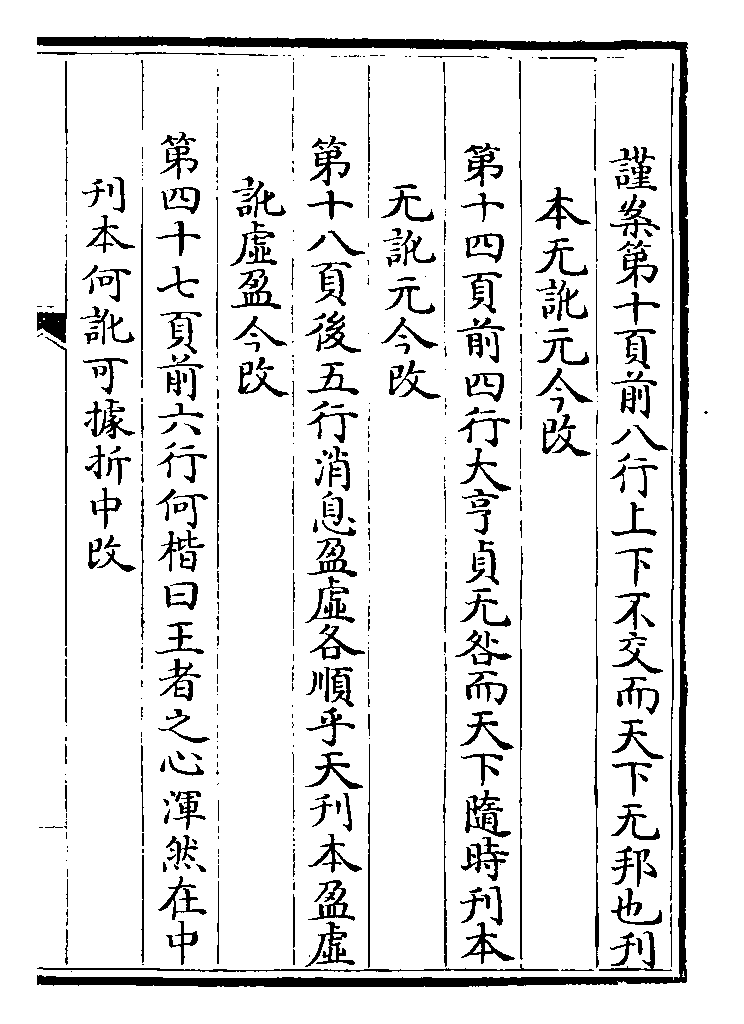 謹案第十頁前八行上下不交而天下无邦也刋
本无訛元今改
第十四頁前四行大亨貞无咎而天下隨時刋本
无訛元今改
第十八頁後五行消息盈虛各順乎天刋本盈虛
訛虛盈今改
第四十七頁前六行何楷曰王者之心渾然在中
刋本何訛可據折中改